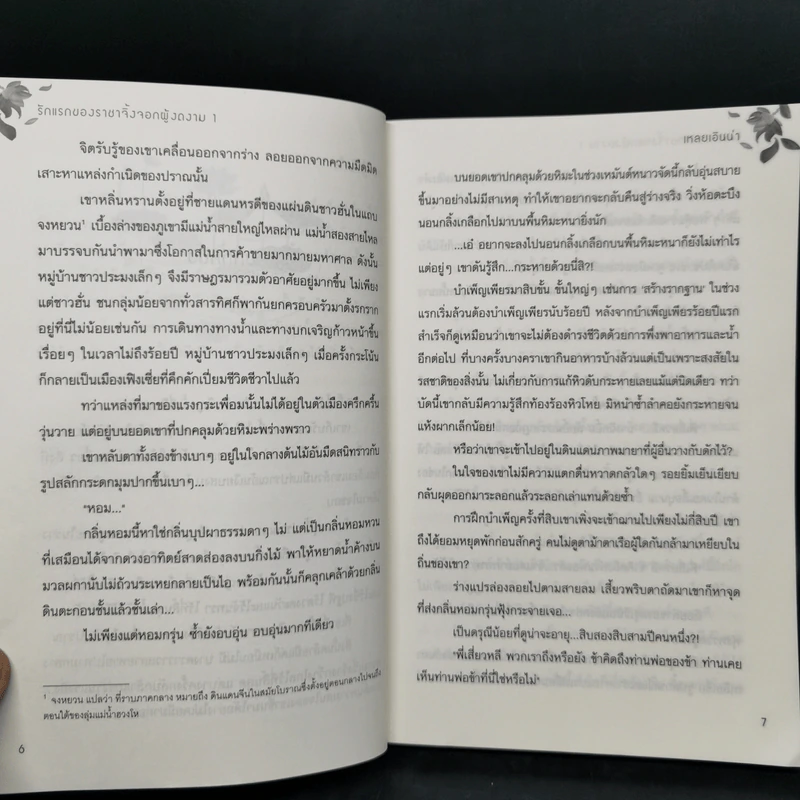 รักแรกของราชาจิ้งจอกผู้งดงาม 1
จิตรับรู้ของเขาเคลื่อนออกจากร่าง ลอยออกจากความมืดมิด
เสาะหาแหล่งกำเนิดของปราณนั้น
เขาหลินหรานตั้งอยู่ที่ชายแดนทรดีของแผ่นดินชาวฮั่นในแถบ
จงหยวน¹ เบื้องล่างของภูเขามีแม่น้ำสายใหญ่ไหลผ่าน แม่น้ำสองสายไหล
มาบรรจบกันนำพามาซึ่งโอกาสในการค้าขายมากมายมหาศาล ดังนั้น
หมู่บ้านชาวประมงเล็กๆ จึงมีราษฎรมารวมตัวอาศัยอยู่มากขึ้น ไม่เพียง
แต่ชาวฮั่น ชนกลุ่มน้อยจากทั่วสารทิศก็พากันยกครอบครัวมาตั้งรกราก
อยู่ที่นี่ไม่น้อยเช่นกัน การเดินทางทางน้ำและทางบกเจริญก้าวหน้าขึ้น
เรื่อยๆ ในเวลาไม่ถึงร้อยปี หมู่บ้านชาวประมงเล็กๆ เมื่อครั้งกระโน้น
ก็กลายเป็นเมืองเฟิงเซี่ยที่คึกคักเปี่ยมชีวิตชีวาไปแล้ว
ทว่าแหล่งที่มาของแรงกระเพื่อมนั้นไม่ได้อยู่ในตัวเมืองครึกครื้น
วุ่นวาย แต่อยู่บนยอดเขาที่ปกคลุมด้วยหิมะพร่างพราว
เขาหลับตาทั้งสองข้างเบาๆ อยู่ในใจกลางต้นไม้อันมืดสนิทราวกับ
รูปสลักกระดกมุมปากขึ้นเบาๆ...
"หอม..."
กลิ่นหอมนี้หาใช่กลิ่นบุปผาธรรมดาๆ ไม่ แต่เป็นกลิ่นหอมหวน
ที่เสมือนได้จากดวงอาทิตย์สาดส่องลงบนกิ่งไม้ พาให้หยาดน้ำค้างบน
มวลผกานับไม่ถ้วนระเหยกลายเป็นไอ พร้อมกันนั้นก็คลุกเคล้าด้วยกลิ่น
ดินตะกอนชั้นแล้วชั้นเล่า...
ไม่เพียงแต่หอมกรุ่น ซ้ำยังอบอุ่น อบอุ่นมากทีเดียว
¹ จงหยวน แปลว่า ที่ราบภาคกลาง หมายถึง ดินแดนจีนในสมัยโบราณซึ่งตั้งอยู่ตอนกลางไปจนถึง
ตอนใต้ของลุ่มแม่น้ำฮวงโห
6
เหลยเอินน่า
บนยอดเขาปกคลุมด้วยหิมะในช่วงเหมันต์หนาวจัดนี้กลับอุ่นสบาย
ขึ้นมาอย่างไม่มีสาเหตุ ทำให้เขาอยากจะกลับคืนสู่ร่างจริง วิ่งห้อตะบึง
นอนกลิ้งเกลือกไปมาบนพื้นหิมะหนายิ่งนัก
...เอ๋ อยากจะลงไปนอนกลิ้งเกลือกบนพื้นหิมะหนาก็ยังไม่เท่าไร
แต่อยู่ๆ เขาดันรู้สึก...กระหายด้วยนี่สิ?!
บำเพ็ญเพียรมาสิบขั้น ขั้นใหญ่ๆ เช่นการ 'สร้างรากฐาน' ในช่วง
แรกเริ่มล้วนต้องบำเพ็ญเพียรนับร้อยปี หลังจากบำเพ็ญเพียรร้อยปีแรก
สำเร็จก็ดูเหมือนว่าเขาจะไม่ต้องดำรงชีวิตด้วยการพึ่งพาอาหารและน้ำ
อีกต่อไป ที่บางครั้งบางคราเขากินอาหารบ้างล้วนแต่เป็นเพราะสงสัยใน
รสชาติของสิ่งนั้น ไม่เกี่ยวกับการแก้หิวดับกระหายเลยแม้แต่นิดเดียว ทว่า
บัดนี้เขากลับมีความรู้สึกท้องร้องหิวโหย มิหนำซ้ำลำคอยังกระหายจน
แห้งผากเล็กน้อย!
หรือว่าเขาจะเข้าไปอยู่ในดินแดนภาพมายาที่ผู้อื่นวางกับดักไว้?
ในใจของเขาไม่มีความแตกตื่นหวาดกลัวใดๆ รอยยิ้มเย็นเยียบ
กลับผุดออกมาระลอกแล้วระลอกเล่าแทนด้วยซ้ำ
การฝึกบำเพ็ญครั้งที่สิบเขาเพิ่งจะเข้าฌานไปเพียงไม่กี่สิบปี เขา
ถึงได้ยอมหยุดพักก่อนสักครู่ คนไม่ดูตาม้าตาเรือผู้ใดกันกล้ามาเหยียบใน
ถิ่นของเขา?
ร่างแปรล่องลอยไปตามสายลม เสี้ยวพริบตาถัดมาเขาก็หาจุด
ที่ส่งกลิ่นหอมกรุ่นฟุ้งกระจายเจอ...
เป็นดรุณีน้อยที่ดูน่าจะอายุ...สิบสองสิบสามปีคนหนึ่ง?!
"พี่เสี่ยวหลี พวกเราถึงหรือยัง ข้าคิดถึงท่านพ่อของข้า ท่านเคย
เห็นท่านพ่อข้าที่นี่ใช่หรือไม่"
7